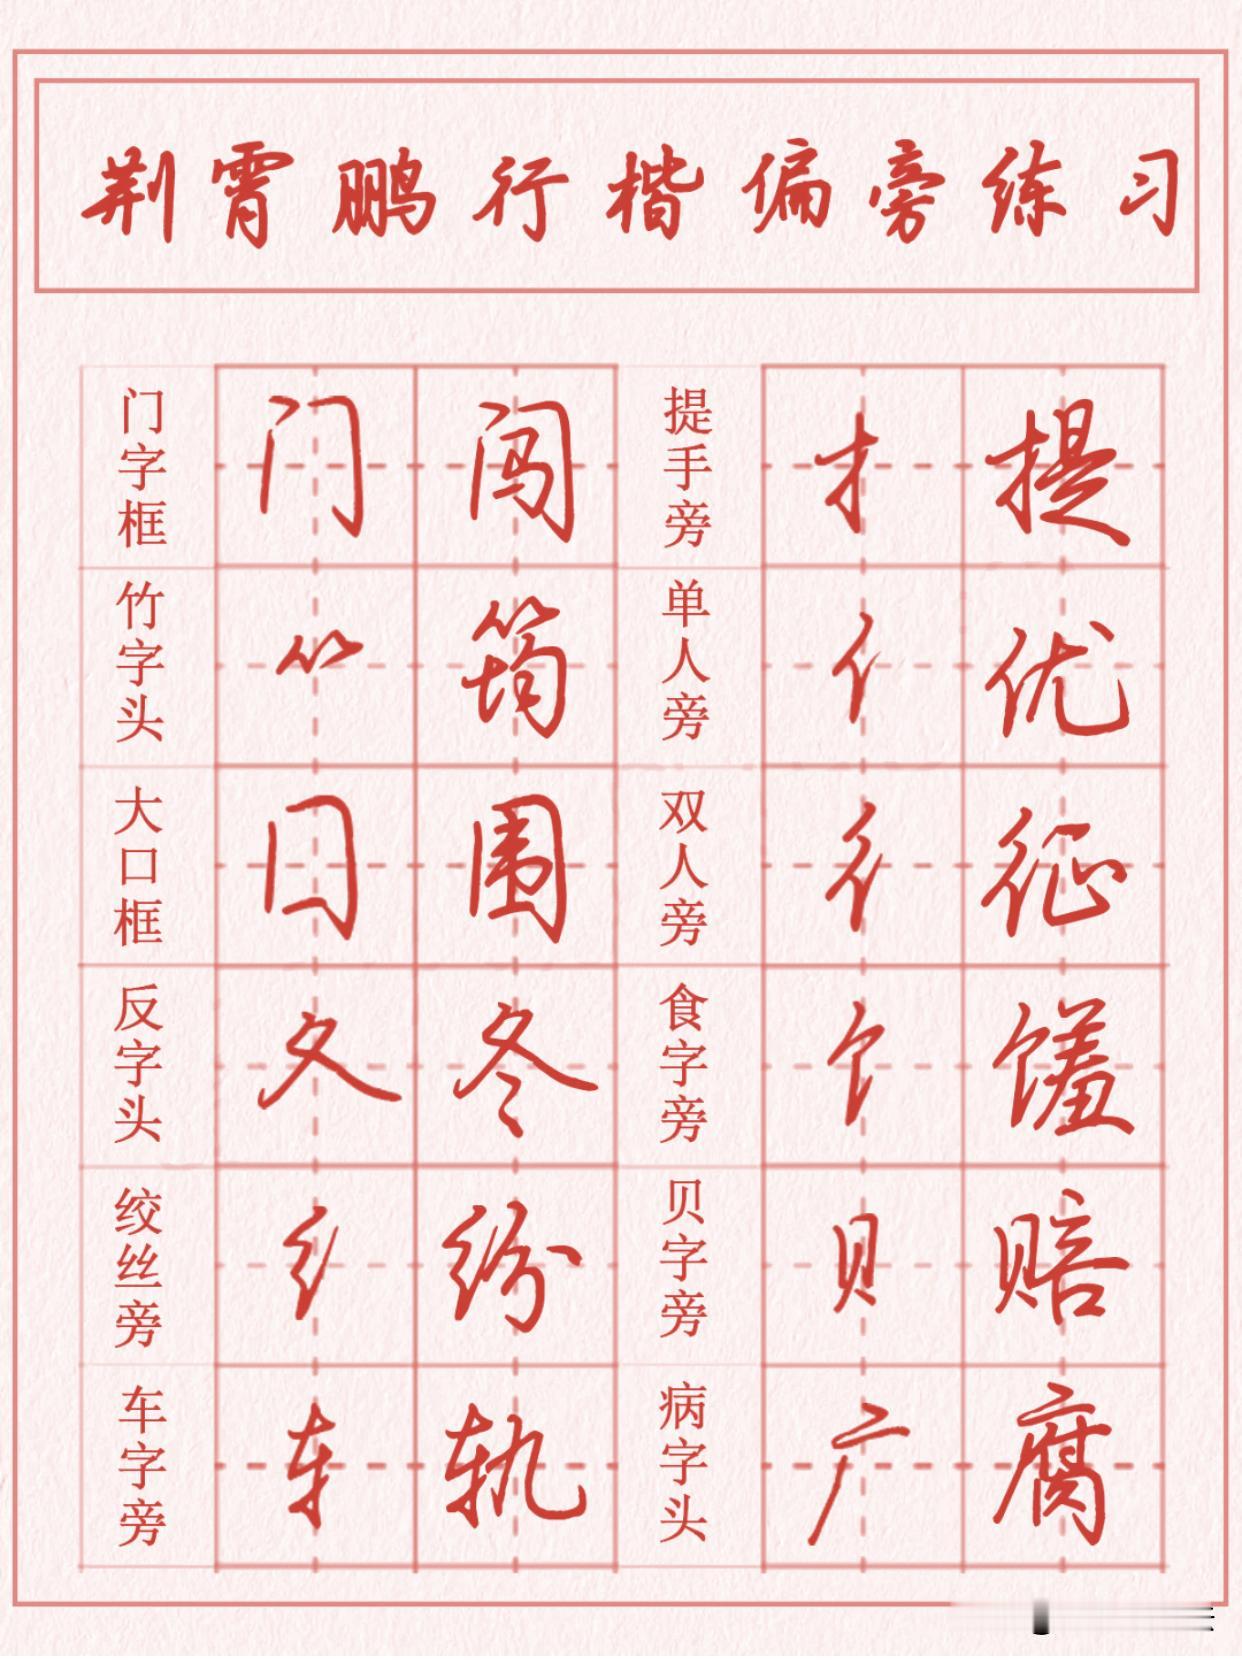 荆霄鹏行楷偏旁练习
门字框 门 闯 提手旁 扌 提
竹字头 ⺮ 筠 单人旁 亻 优
大口框 囗 围 双人旁 彳 征
反字头 夂 冬 食字旁 饣 馐
绞丝旁 纟 纷 贝字旁 贝 赔
车字旁 车 轨 病字头 广 腐